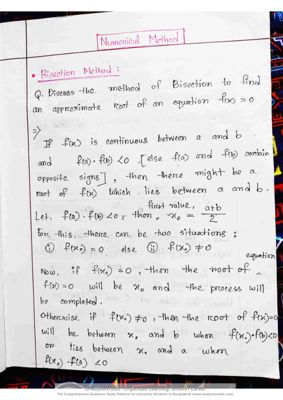 Numerical Method
• Bisection Method :
Q. Discuss the method of Bisection to find
an approximate root of an equation f(x) = 0
⇒
If f(x) is continuous between a and b
and f(a)·f(b) <0 [else f(a) and f(b) contain
opposite signs], then there might be a
root of f(x) which lies between a and b.
first value,
Let, f(a)·f(b) <0, then, x₀ = a+b/2
For this, there can be two situations:
(i) f(x₀) = 0 else (ii) f(x₀) ≠ 0
equation
Now, if f(x₀) = 0, then the root of ^
f(x) = 0 will be x₀ and the process will
be completed.
Otherwise, if f(x₀) ≠ 0, then the root of f(x)=0
will be between x₀ and b when f(x₀)·f(b)<0
or lies between x₀ and a when
f(x₀)·f(a) <0
The Comprehensive Academic Study Platform for University Students in Bangladesh